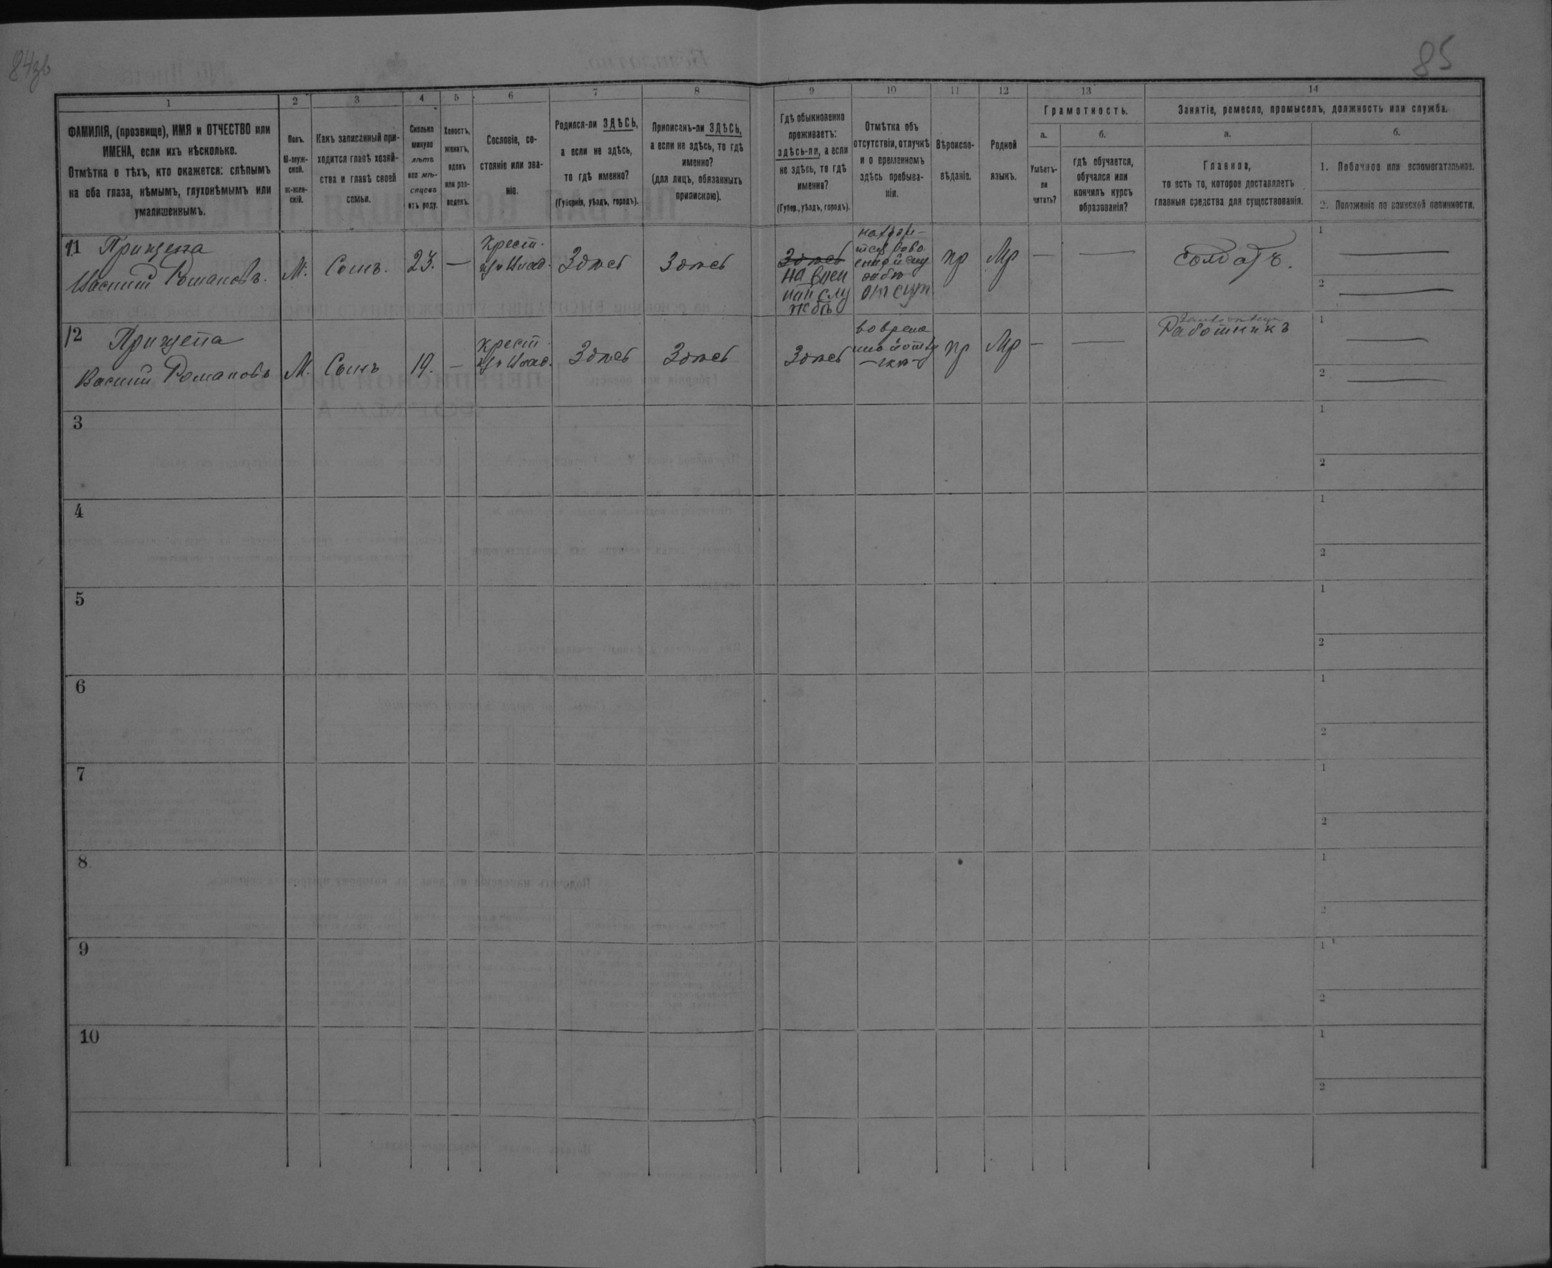 84зв
85
1
2
3
4
5
6
7
8
9
10
11
12
13
14
ФАМИЛІЯ, (прозвище), ИМЯ и ОТЧЕСТВО или
ИМЕНА, если ихъ нѣсколько.
Отмѣтка о тѣхъ, кто окажется: слѣпымъ
на оба глаза, нѣмымъ, глухонѣмымъ или
умалишеннымъ.
Полъ.
М-муж-
ской.
Ж-жен-
скій.
Какъ записанный при-
ходится главѣ хозяй-
ства и главѣ своей
семьи.
Сколько
минуло
лѣтъ
или мѣ-
сяцевъ
отъ роду.
Холостъ,
женатъ,
вдовъ
или раз-
веденъ.
Сословіе, со-
стояніе или зва-
ніе.
Родился-ли ЗДѢСЬ,
а если не здѣсь,
то гдѣ именно?
(Губернія, уѣздъ, городъ).
Приписанъ-ли ЗДѢСЬ,
а если не здѣсь, то гдѣ
именно?
(для лицъ, обязанныхъ
припискою).
Гдѣ обыкновенно
проживаетъ:
здѣсь-ли, а если
не здѣсь, то гдѣ
именно?
(Губер., уѣздъ, городъ).
Отмѣтка объ
отсутствіи, отлучкѣ
и о временномъ
здѣсь пребыва-
ніи.
Вѣроиспо-
вѣданіе.
Родной
языкъ.
Грамотность.
а.
Умѣетъ-
ли
читать?
б.
гдѣ обучается,
обучался или
кончилъ курсъ
образованія?
Занятіе, ремесло, промыселъ, должность или служба.
а.
Главное,
то есть то, которое доставляетъ
главныя средства для существованія.
б.
1. Побочное или вспомогательное.
2. Положеніе по воинской повинности.
11 Прищепа
Василий Романовъ.
М.
Сынъ.
23.
—
крест.
Здѣсь
Здѣсь
Здѣсь
на воен
ной слу
жбѣ
отсут.
пр
Мр
—
—
солдатъ.
1 —
2 —
12 Прищепа
Василий Романовъ
М.
Сынъ
19.
—
крест
Здѣсь
Здѣсь
Здѣсь
пр
Мр
—
—
Работникъ
1 —
2 —
3
1
2
4
1
2
5
1
2
6
1
2
7
1
2
8
1
2
9
1
2
10
1
2